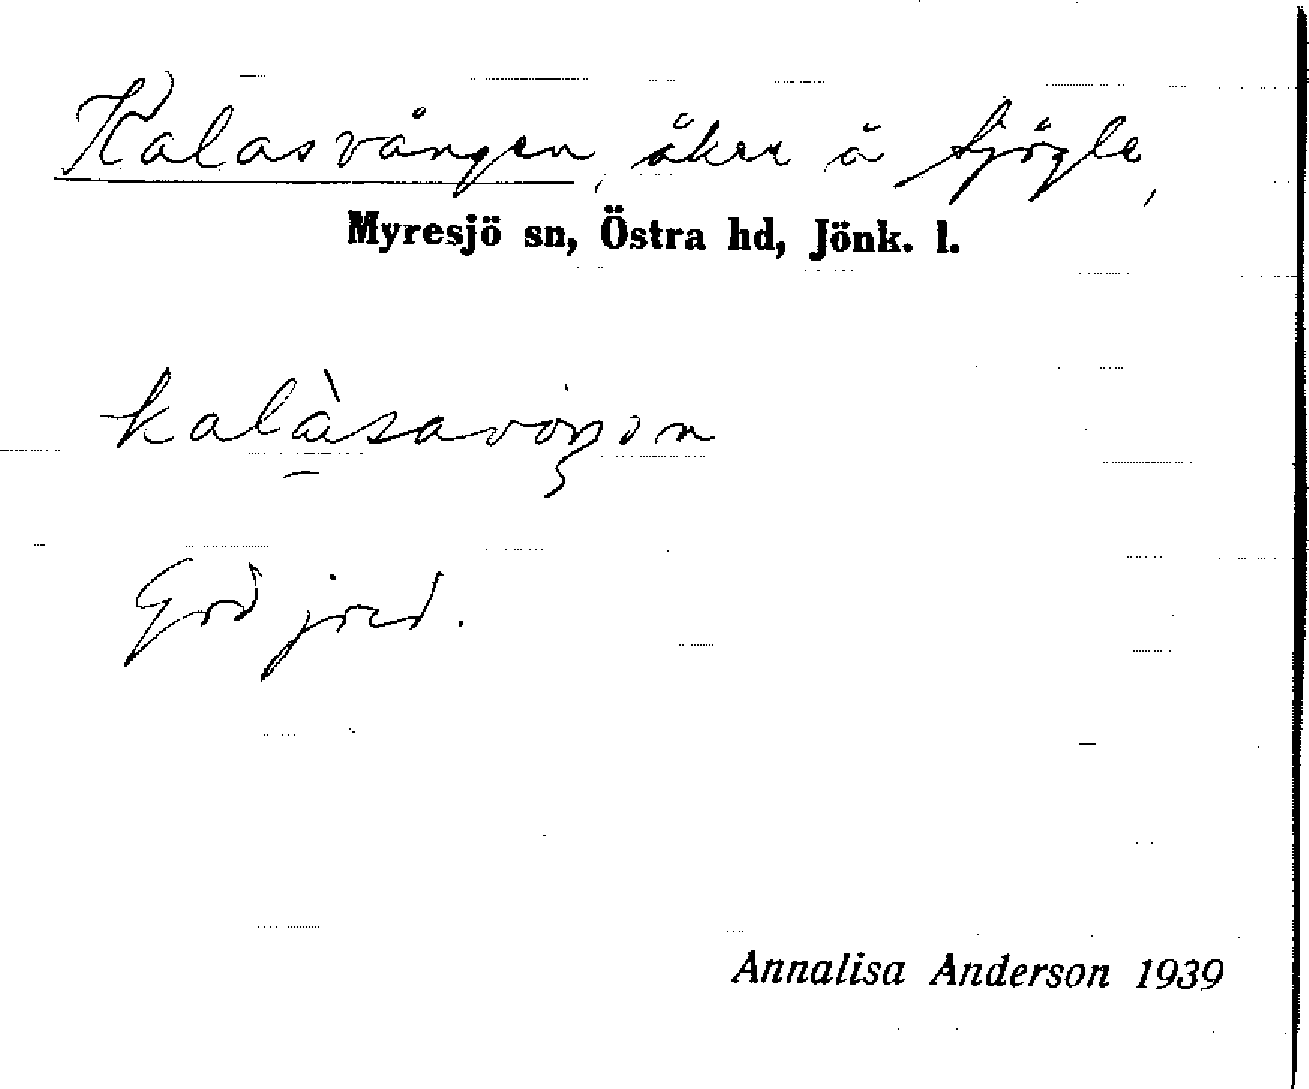 Kalasvången, åker å Fjögle,
Myresjö sn, Östra hd, Jönk. l.
God jord.
Annalisa Anderson 1939